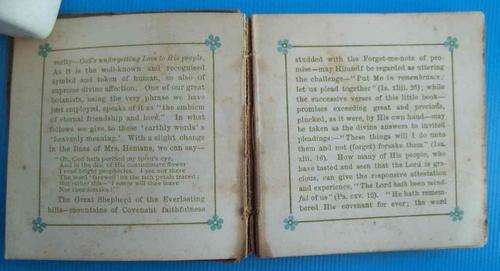 metly—God's unforgetting Love to His people.
As it is the well-known and recognised
symbol and token of human, so also of
supreme divine affection. One of our great
botanists, using the very phrase we have
just employed, speaks of it as "the emblem
of eternal friendship and love." In what
follows we give to these 'earthly words' a
'heavenly meaning.' With a slight change
in the lines of Mrs. Hemans, we can say—
"Oh, God hath purified my spirit's eye,
And in the folds of this consummate flower
I read bright prophecies. I see not there
The word 'farewell' on the rich petals traced;
But rather this—'I never will thee leave
Nor thee forsake!'"
The Great Shepherd of the Everlasting
hills—mountains of Covenant faithfulness
studded with the Forget-me-nots of pro-
mise—may Himself be regarded as uttering
the challenge—"Put Me in remembrance;
let us plead together" (Is. xliii. 26); while
the successive verses of this little book—
promises exceeding great and precious,
plucked, as it were, by His own hand—may
be taken as the divine answers to invited
pleadings:—"These things will I do unto
them and not (forget) forsake them" (Isa.
xlii. 16). How many of His people, who
have tasted and seen that the Lord is gra-
cious, can give the responsive attestation
and experience, "The Lord hath been mind-
ful of us" (Ps. cxv. 12). "He hath remem-
bered His covenant for ever; the word